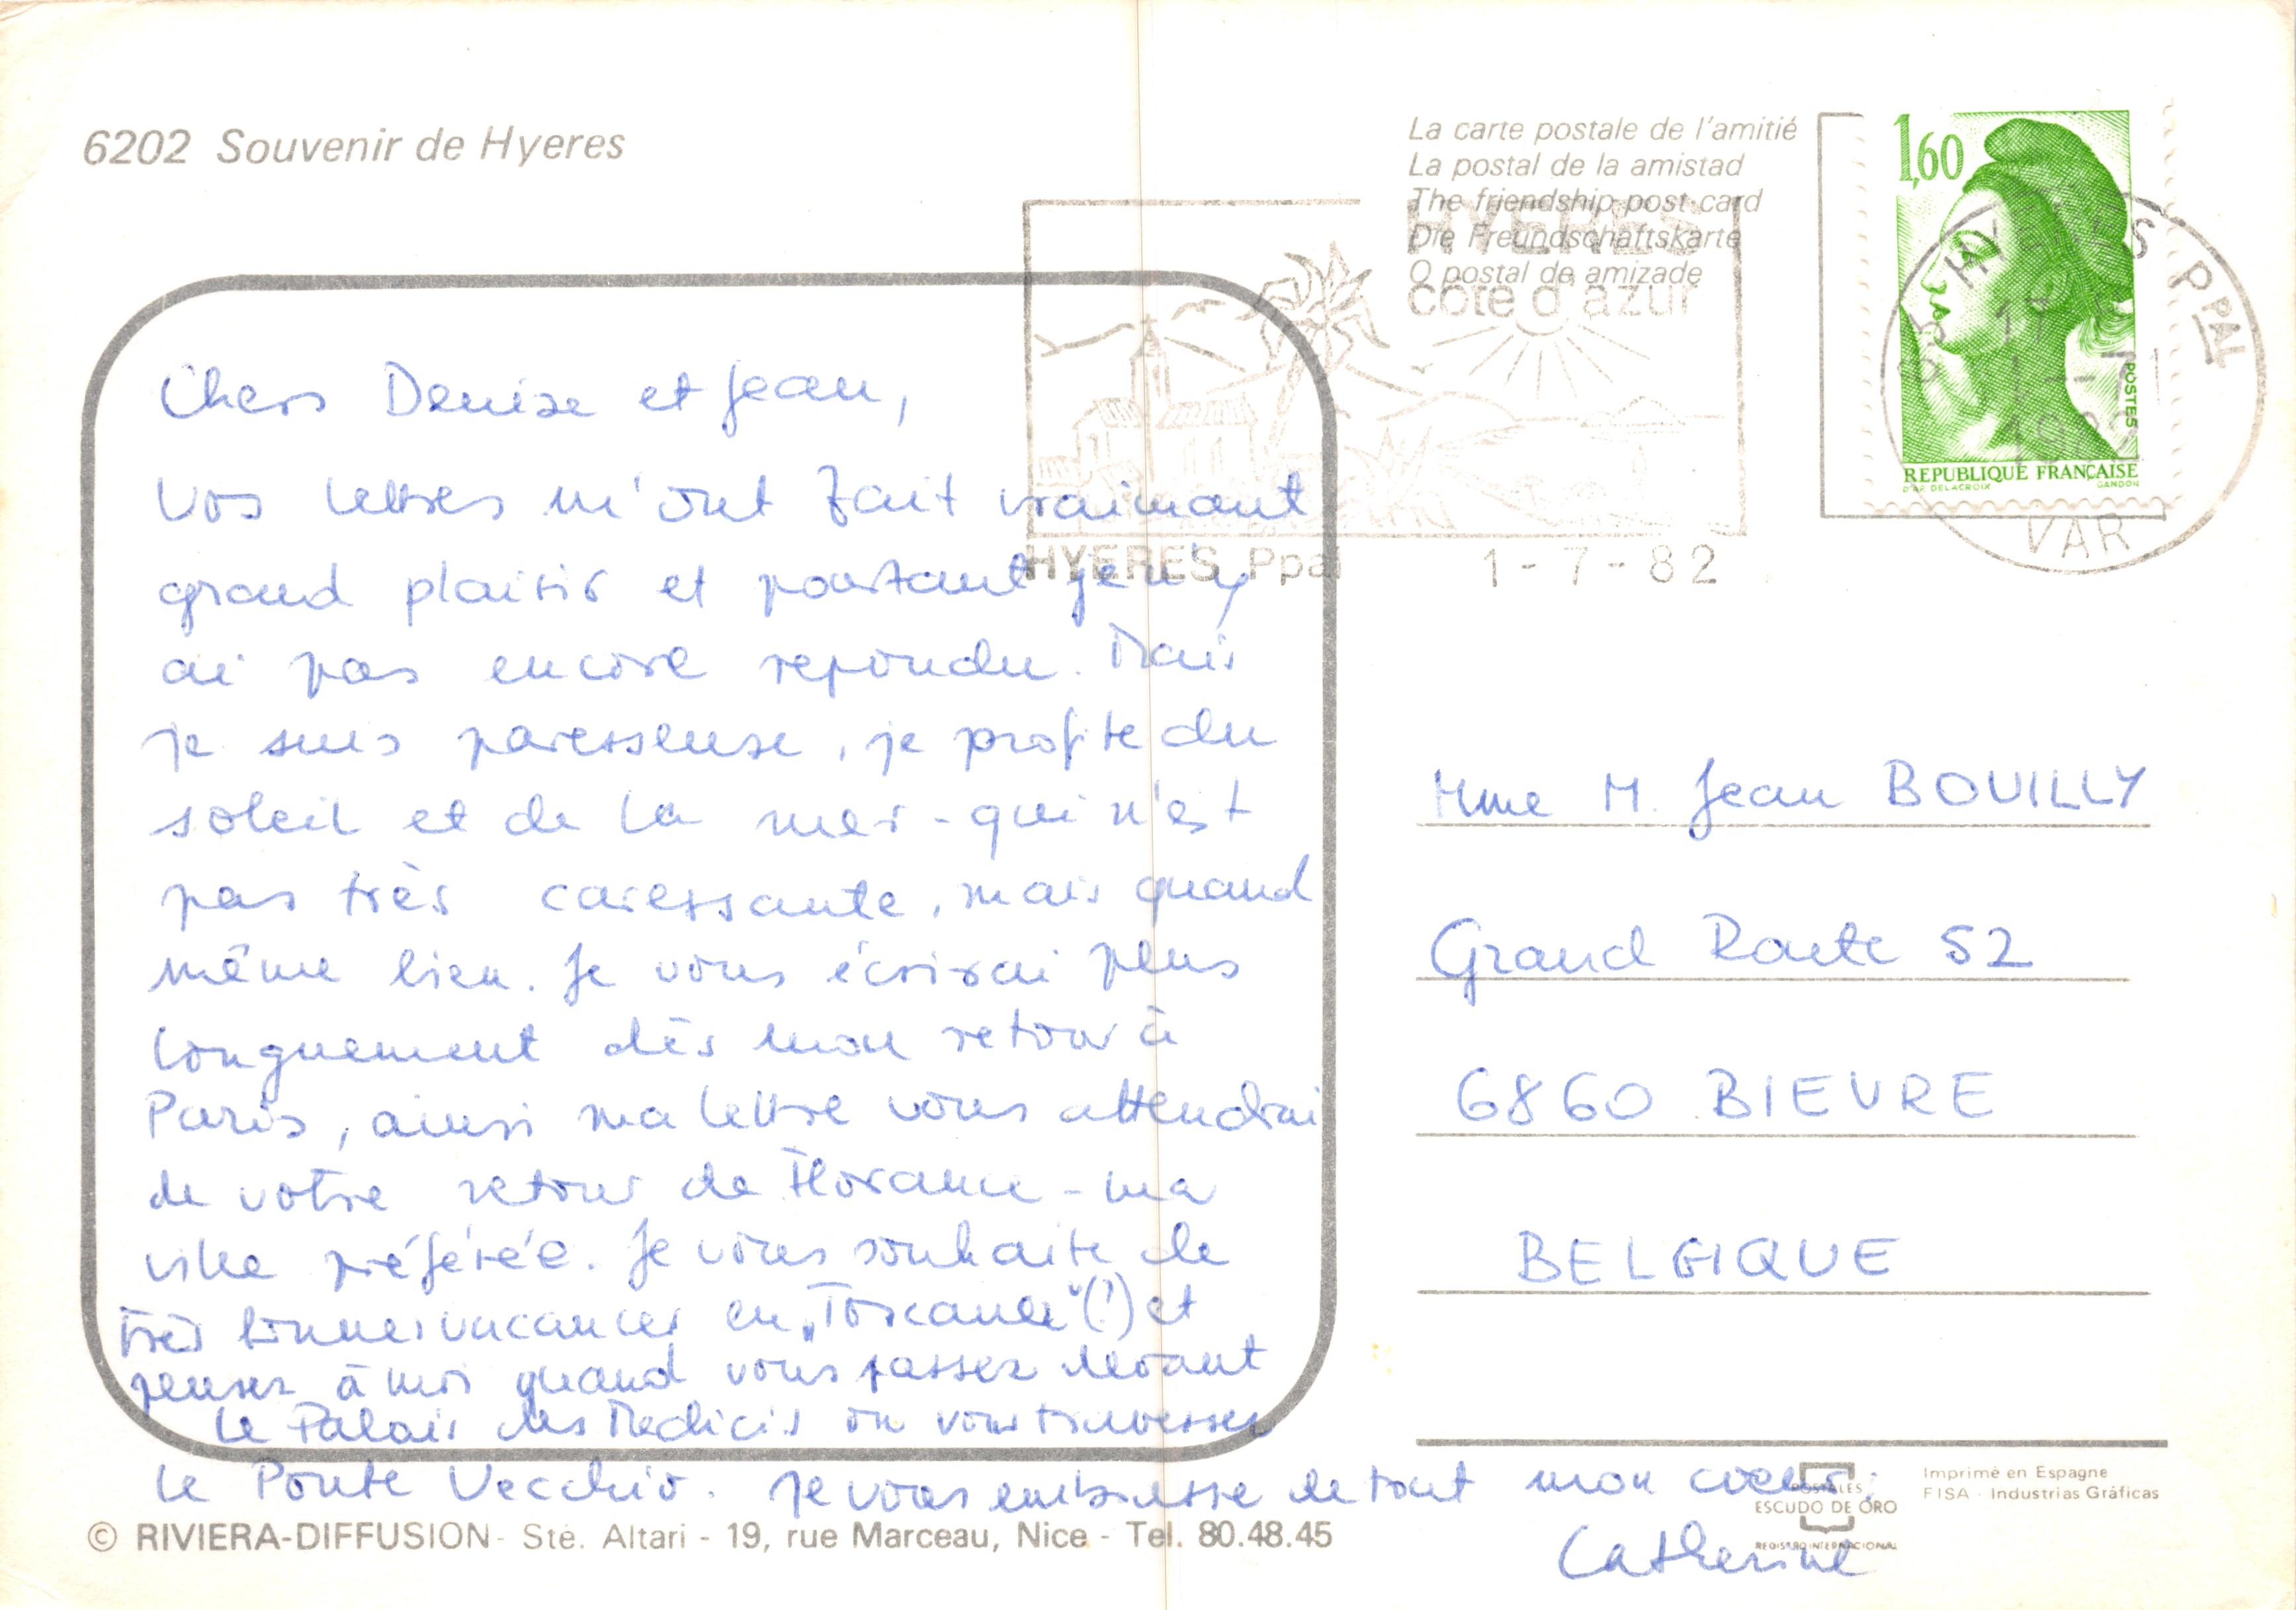 6202 Souvenir de Hyeres
La carte postale de l'amitié
La postal de la amistad
The friendship post card
Die Freundschaftskarte
O postal de amizade
HYERES
côte d'azur
HYERES Ppal 1-7-82
1,60
POSTES
REPUBLIQUE FRANÇAISE
D'AP. DELACROIX GANDON
83 HYERES PPAL
17 H
1-7
1982
VAR
Chers Denise et Jean,
Vos lettres m'ont fait vraimant
grand plaisir et pourtant je n'y
ai pas encore repondu. Mais
je suis paresseuse, je profite du
soleil et de la mer - qui n'est
pas très caressante, mais quand
même bien. Je vous écrirai plus
longuement dès mon retour à
Paris, ainsi ma lettre vous attendrai
de votre retour de Florance - ma
ville préférée. Je vous souhaite de
très bonnes vacances en „Toscane" (!) et
pensez à moi quand vous passez devant
le Palais des Medicis ou vous traversez
le Ponte Vecchio. Je vous embrasse de tout mon coeur.
Catherine
Mme M. Jean BOUILLY
Grand Route 52
6860 BIEVRE
BELGIQUE
© RIVIERA-DIFFUSION - Sté. Altari - 19, rue Marceau, Nice - Tel. 80.48.45
POSTALES
ESCUDO DE ORO
REGISTRO INTERNACIONAL
Imprimé en Espagne
FISA - Industrias Gráficas